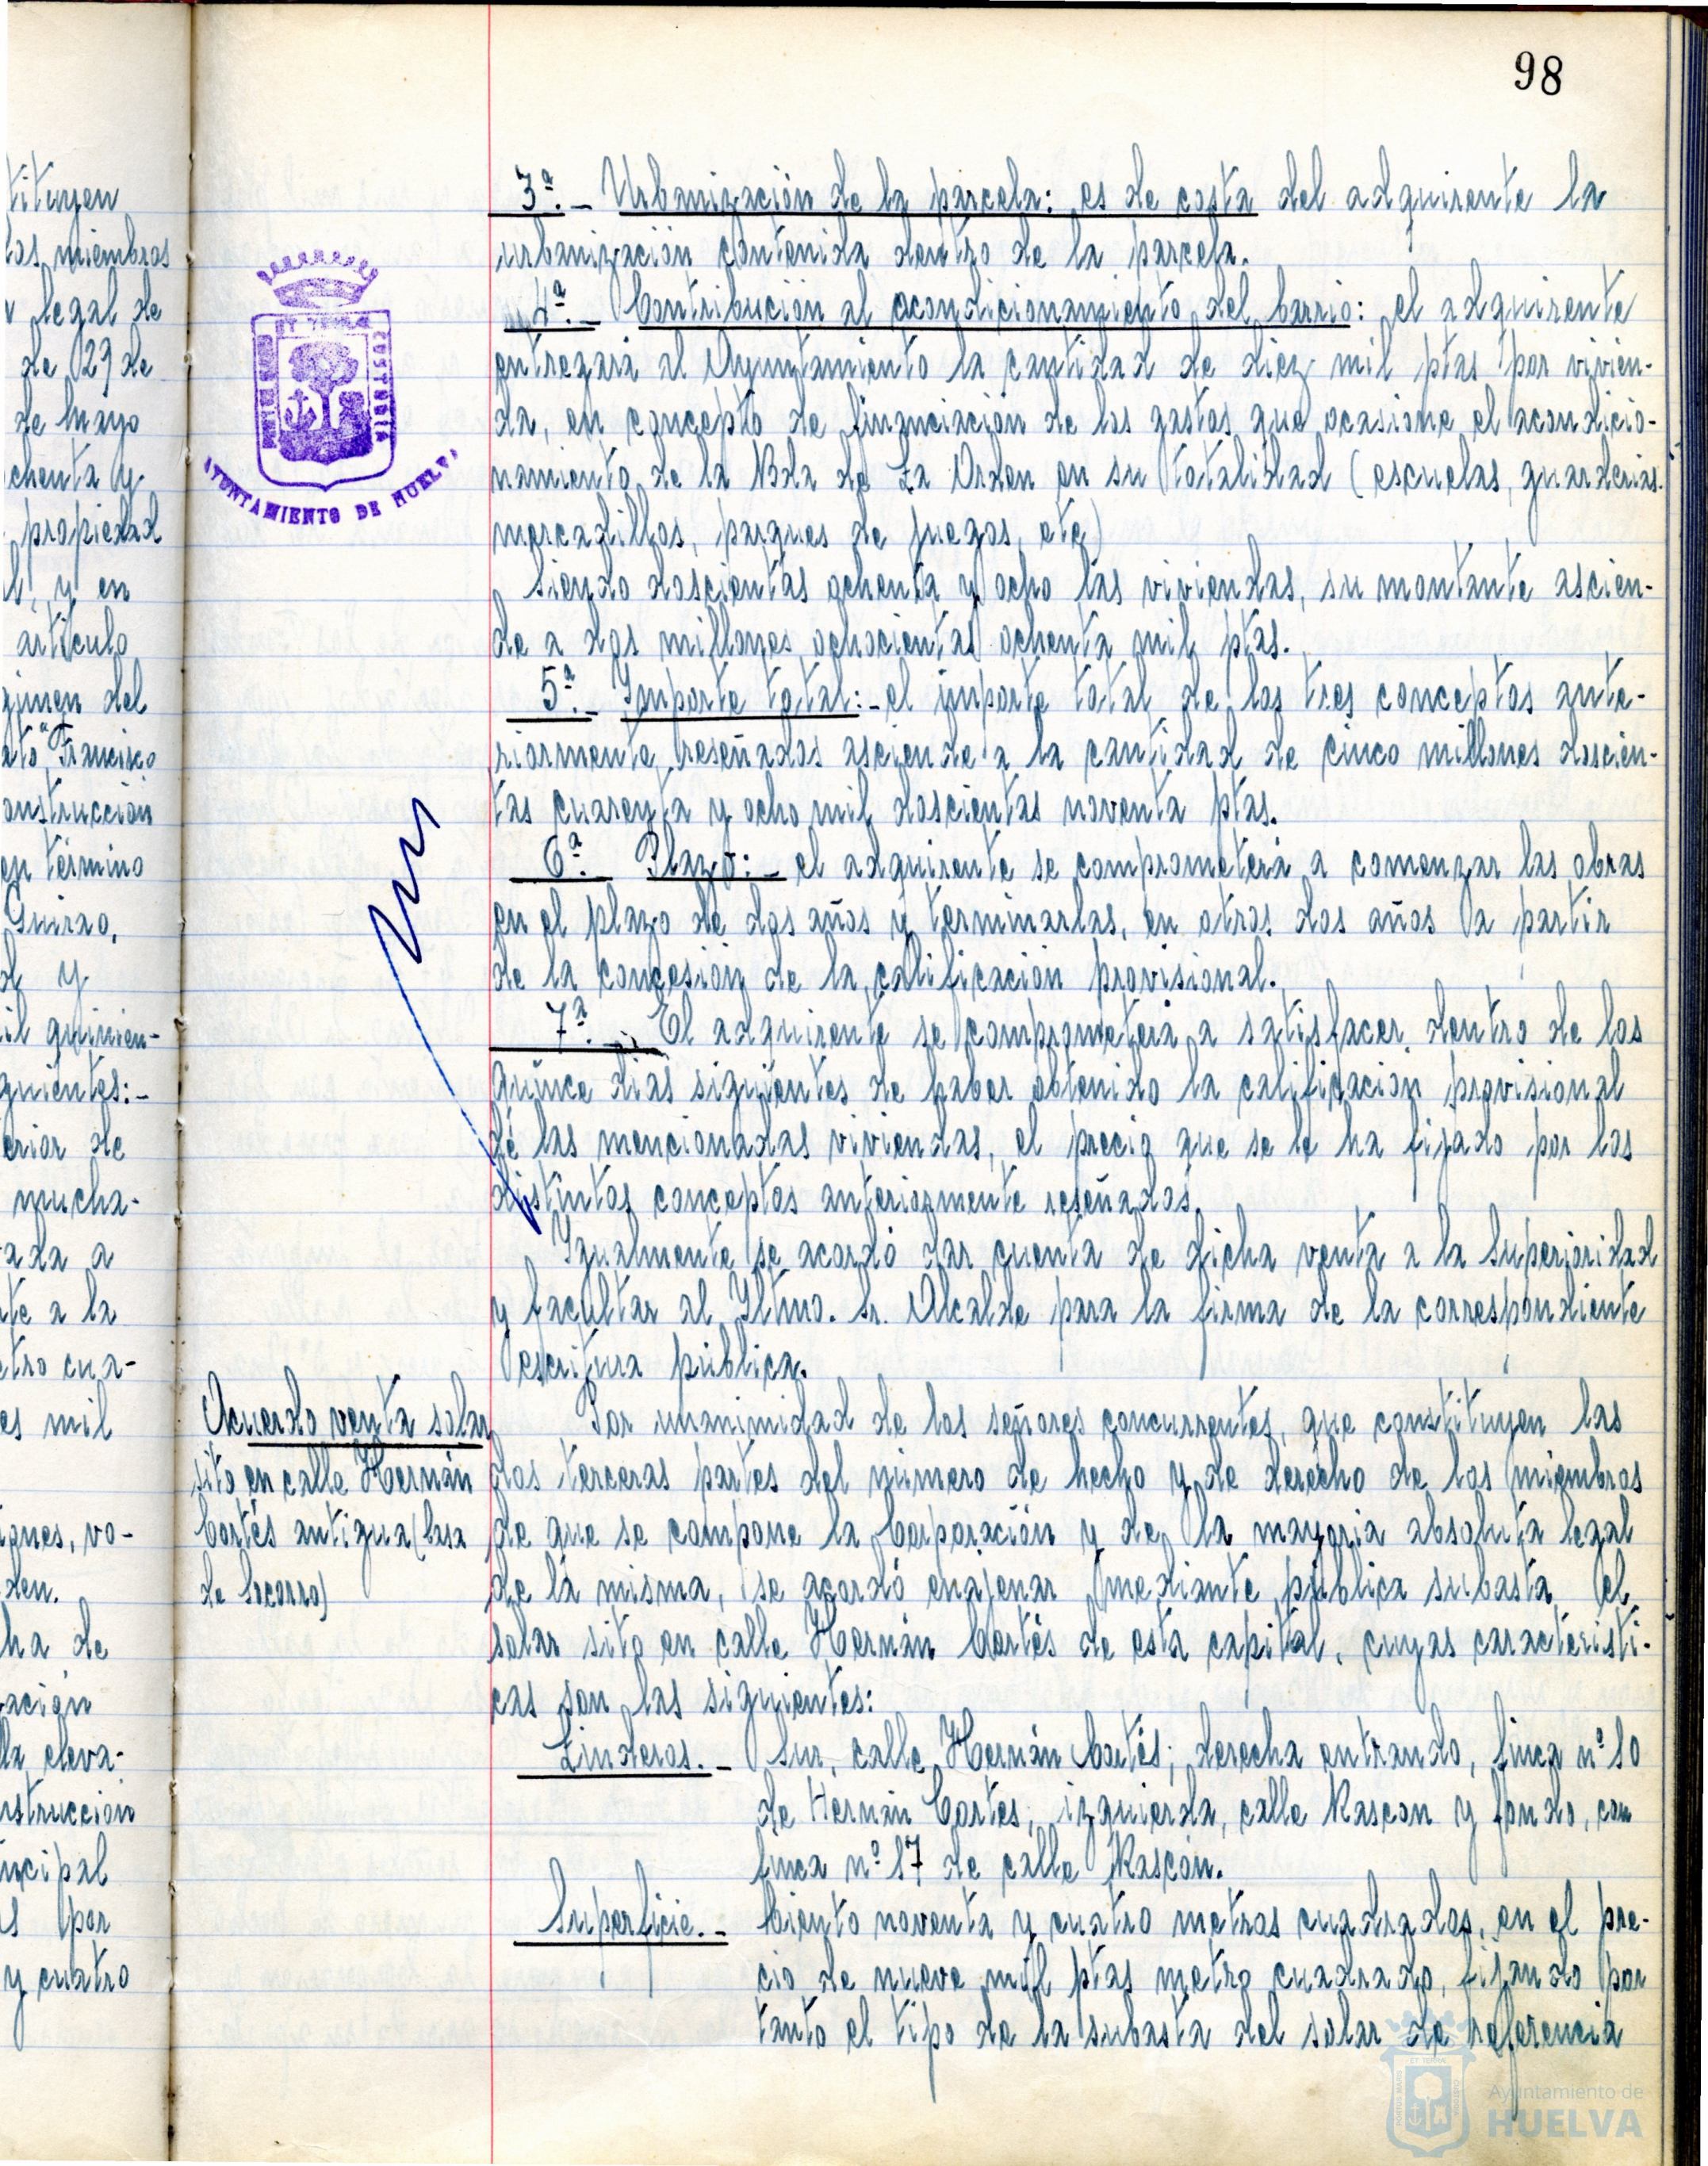 98
tituyen
los miembros
legal de
de 27 de
de mayo
chenta y
propiedad
y en
artículo
gimen del
ato "Francisco
onstrucción
en término
Guirao,
y
il quinien-
guientes:-
erior de
mucha-
ada a
te a la
etro cua-
es mil
ignes, vo-
den.
ha de
ación
la eleva-
nstrucción
ncipal
s por
y cuatro
ET TERRÆ
CUSTODIA
AYUNTAMIENTO DE HUELVA
3ª.- Urbanización de la parcela: es de costa del adquirente la
urbanización contenida dentro de la parcela.
4ª.- Contribución al acondicionamiento del barrio: el adquirente
entregará al Ayuntamiento la cantidad de diez mil ptas por vivien-
da, en concepto de financiación de los gastos que ocasione el acondicio-
namiento de la Bda de La Orden en su totalidad (escuelas, guarderias.
mercadillos, parques de juegos, etc)
Siendo doscientas ochenta y ocho las viviendas, su montante ascien-
de a dos millones ochocientas ochenta mil ptas.
5ª.- Importe total:- el importe total de los tres conceptos ante-
riormente reseñados asciende a la cantidad de cinco millones doscien-
tas cuarenta y ocho mil doscientas noventa ptas.
6ª.- Plazo:- el adquirente se comprometerá a comenzar las obras
en el plazo de dos años y terminarlas, en otros dos años a partir
de la concesión de la calificación provisional.
7ª.- El adquirente se comprometerá a satisfacer dentro de los
quince dias siguientes de haber obtenido la calificación provisional
de las mencionadas viviendas, el precio que se le ha fijado por los
distintos conceptos anteriormente reseñados.
Igualmente se acordó dar cuenta de dicha venta a la Superioridad
y facultar al Iltmo. Sr. Alcalde para la firma de la correspondiente
escritura pública.
Acuerdo venta solar
sito en calle Hernán
Cortés antigua (Casa
de Socorro)
Por unanimidad de los señores concurrentes, que constituyen las
dos terceras partes del número de hecho y de derecho de los miembros
de que se compone la Corporación y de la mayoria absoluta legal
de la misma, se acordó enajenar mediante pública subasta el
solar sito en calle Hernán Cortés de esta capital, cuyas caracteristi-
cas son las siguientes:
Linderos.- Sur, calle Hernán Cortés; derecha entrando, finca nº 10
de Hernán Cortes; izquierda, calle Rascon y fondo, con
finca nº 17 de calle Rascón.
Superficie.- Ciento noventa y cuatro metros cuadrados, en el pre-
cio de nueve mil ptas metro cuadrado, fijando por
tanto el tipo de la subasta del solar de referencia
Ayuntamiento de
HUELVA